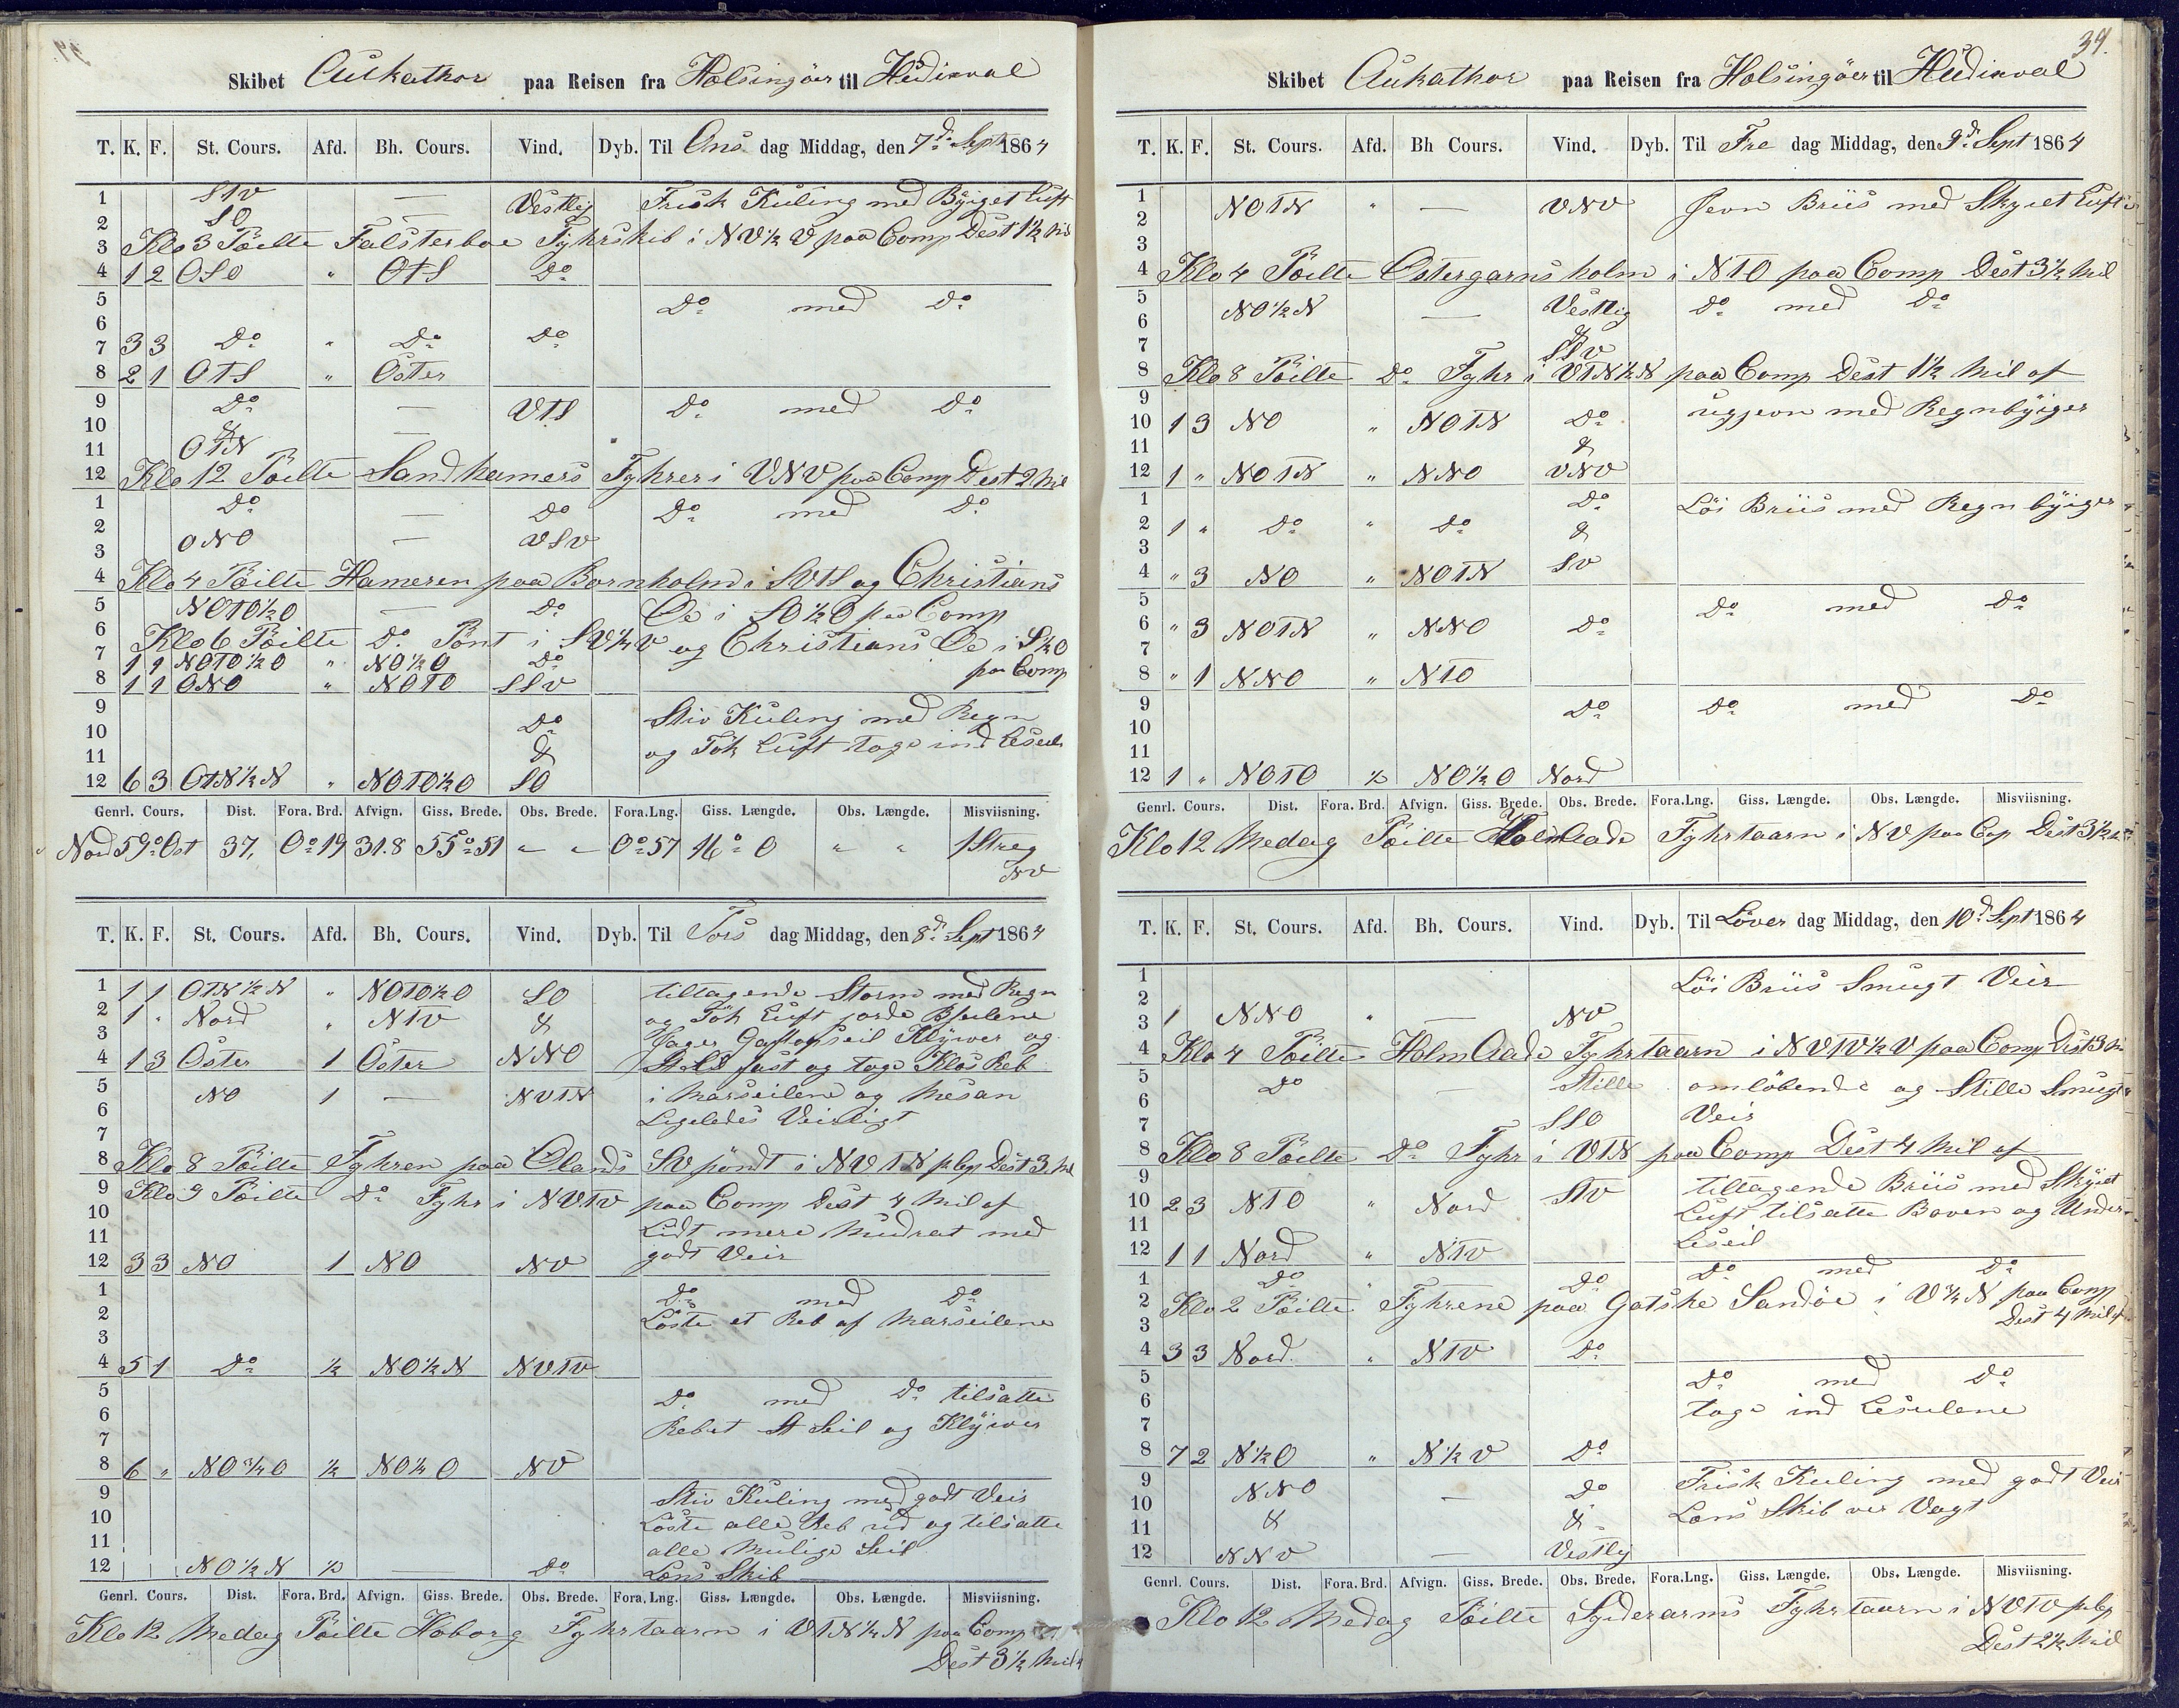 Skibet Aukathor paa Reisen fra Helsingöer til Hudixval
T. K. F. St. Cours. Afd. Bh. Cours. Vind. Dyb. Til Ons dag Middag, den 7d. Sept 1864
1 StV — Vestlig Frisk Kuling med Byiget Luft
2 SO —
3 Klo 3 Pöilte Falsterboe Fyhrskib i NV½V paa Comp Dest 1½ Mil
4 1 2 OSO " OtS Do
5 Do med Do
6
7 3 3 Do " Do Do
8 2 1 OTS " Öster
9 Do — VTS Do med Do
10 &
11 OTN —
12 Klo 12 Pöilte Sandhamers Fyhrer i VNV paa Comp Dest 2 Mil
1 Do — Do Do med Do
2
3 ONO — VSV
4 Klo 4 Pöilte Hameren paa Bornholm i SVTS og Christians
5 NOTO½O — Do Oe i SO½O paa Comp
6 Klo 6 Pöilte Do Pönt i SV½V og Christians Oe i S½O
7 1 1 NOTO½O " NO½O Do paa Comp
8 1 1 ONO " NOTO SSV
9 Do Stiv Kuling med Regn
10 &
11 og Tök Luft toge ind Leseil
12 6 3 OTN½N " NOTO½O SO
Genrl. Cours. Dist. Fora. Brd. Afvign. Giss. Brede. Obs. Brede. Fora. Lng. Giss. Længde. Obs. Længde. Misviisning.
Nord 59° Ost 37, 0°19 31.8 55°51 " " 0°57 16°0 " " 1 Streg
NV
T. K. F. St. Cours. Afd. Bh. Cours. Vind. Dyb. Til Tors dag Middag, den 8d. Sept 1864
1 1 1 OTN½N " NOTO½O SO tiltagende Storm med Regn
2 1 " Nord " NTV & og Tök Luft
3 Jager Klÿwer og
4 1 3 Öster 1 Öster NNO fast og toge Klos Reb
5 NO 1 — NVTN i Marseilene og Mesan
6 Ligeledes Veirligt
7
8 Klo 8 Pöilte Fyhren paa Olands SV pöndt i NVTN Dest 3 Mil
9 Klo 9 Pöilte Do Fyhr i NVTV paa Comp Dest 4 Mil af
10
11 Lidt mere Mudrat med
12 3 3 NO 1 NO NV godt Veir
1 Do med Do
2 Löste et Reb af Marseilene
3
4 5 1 Do ½ NO½N NVTV
5 Do med Do tilsatte
6 Rebet St Seil og Klÿwer
7
8 6 " NO¾O ½ NO½O NV
9 Stiv Kuling med godt Veir
10 Löste alle Reb ud og tilsatte
11 alle Mulige Seil
12 NO½N ½ — Do Lens Skib
Genrl. Cours. Dist. Fora. Brd. Afvign. Giss. Brede. Obs. Brede. Fora. Lng. Giss. Længde. Obs. Længde. Misviisning.
Klo 12 Medag Pöilte Hoborg Fyhrtaarn i VTN½N paa Comp
Dest 3½ Mil
34.
Skibet Aukathor paa Reisen fra Helsingöer til Hudixval
T. K. F. St. Cours. Afd. Bh Cours. Vind. Dyb. Til Fre dag Middag, den 9d. Sept 1864
1 NOTN " — VNV Jevn Briis med Skyet Luft
2
3
4 Klo 4 Pöilte Östergarnsholm i NTO paa Comp Dest 3½ Mil
5 NO½N — Vestlig Do med Do
6 &
7 SSV
8 Klo 8 Pöilte Do Fyhr i VTN½N paa Comp Dest 1½ Mil af
9 ugjevn med Regnbÿiger
10 1 3 NO " NOTN Do
11 &
12 1 " NOTN " NNO VNV
1 Do Löi Briis med Regn bÿiger
2 1 " Do " Do &
3
4 " 3 NO " NOTN SV
5 Do med Do
6 " 3 NOTN " NNO Do
7
8 " 1 NNO " NTO
9 Do Do med Do
10
11
12 1 " NOTO ½ NO½O Nord
Genrl. Cours. Dist. Fora. Brd. Afvign. Giss. Brede. Obs. Brede. Fora. Lng. Giss. Længde. Obs. Længde. Misviisning.
Klo 12 Medag Pöilte Fyhrtaarn i NV paa Cop Dest 3½
T. K. F. St. Cours. Afd. Bh. Cours. Vind. Dyb. Til Löver dag Middag, den 10d. Sept 1864
1 Löi Briis Smugt Veir
2
3 1 NNO " — NV
4 Klo 4 Pöilte HolmOade Fyhrtaarn i NVTV½V paa Comp Dest 3
5 Do — Stille omlöbende og Stille Smugt
6 Veir
7 SSO
8 Klo 8 Pöilte Do Fyhr i VTN paa Comp Dest 4 Mil af
9 tiltagende Briis med Skÿiet
10 2 3 NTO " Nord StV Luft tilsatte Boven og Under
11 Leseil
12 1 1 Nord " NTV
1 Do " Do Do med Do
2 Klo 2 Pöilte Fyhrene paa Gotske Sandöe i V¾N paa Comp
3 Dest 4 Mil af
4 3 3 Nord " NTV Do
5 Do med Do
6 toge ind Leseilene
7
8 7 2 N½O " N½V Do
9 NNO — Do Frisk Kuling med godt Veir
10 Lens Skib ver Vagt
11 & &
12 NNV — Vestlig
Genrl. Cours. Dist. Fora. Brd. Afvign. Giss. Brede. Obs. Brede. Fora. Lng. Giss. Længde. Obs. Længde. Misviisning.
Klo 12 Medag Pöilte Syderarms Fyhrtaarn i NVTV
Dest 2½ Mil